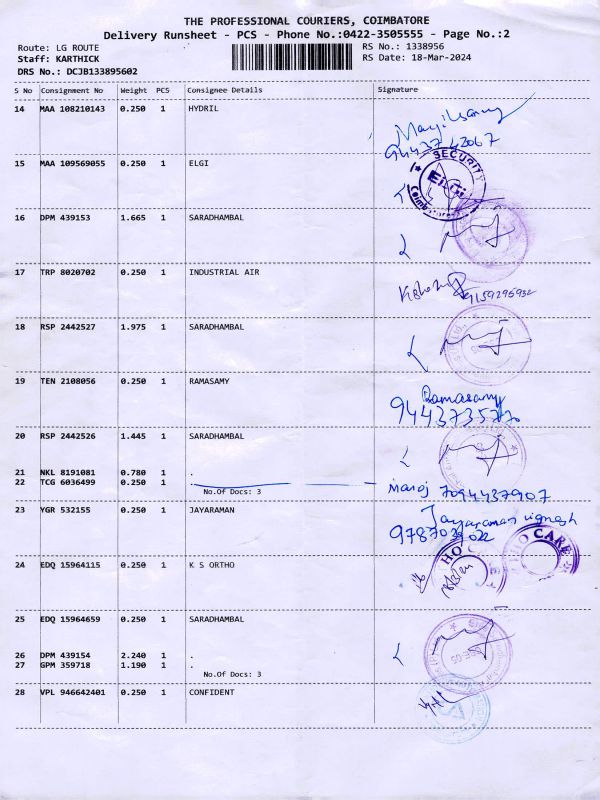 THE PROFESSIONAL COURIERS, COIMBATORE
Delivery Runsheet - PCS - Phone No.:0422-3505555 - Page No.:2
Route: LG ROUTE RS No.: 1338956
Staff: KARTHICK RS Date: 18-Mar-2024
DRS No.: DCJB133895602
S No Consignment No Weight PCS Consignee Details Signature
14 MAA 108210143 0.250 1 HYDRIL
9443742067
15 MAA 109569055 0.250 1 ELGI
SECURITY
ELGi
16 DPM 439153 1.665 1 SARADHAMBAL
17 TRP 8020702 0.250 1 INDUSTRIAL AIR
9159295932
18 RSP 2442527 1.975 1 SARADHAMBAL
19 TEN 2108056 0.250 1 RAMASAMY
Ramasamy
20 RSP 2442526 1.445 1 SARADHAMBAL
21 NKL 8191081 0.780 1 .
22 TCG 6036499 0.250 1 .
No.Of Docs: 3
Manoj 7094437907
23 YGR 532155 0.250 1 JAYARAMAN
Jayaraman vignesh
24 EDQ 15964115 0.250 1 K S ORTHO
HO CARE
25 EDQ 15964659 0.250 1 SARADHAMBAL
26 DPM 439154 2.240 1 .
27 GPM 359718 1.190 1 .
No.Of Docs: 3
28 VPL 946642401 0.250 1 CONFIDENT